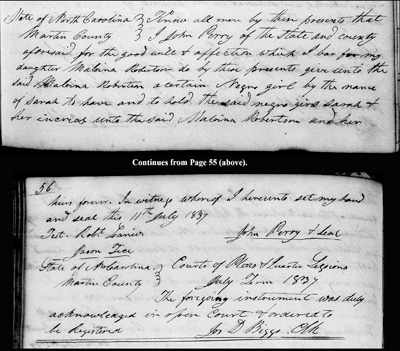 State of North Carolina } Know all men by these presents that
Martin County } I John Perry of the State and county
aforesaid for the good will & affection which I bar for my
daughter Malvina Robertson do by these presents give unto the
said Malvina Robertson a certain Negro girl by the name
of Sarah to have and to hold the said negro girs Sarah &
her incrias unto the said Malvina Robertson and her
Continues from Page 55 (above).
56
heirs forever. In witness whereof I hereunto set my hand
and seal this 11th July 1837
Test. Robt. Lanier John Perry & Seal
Jason Fice
State of No Carolina } Courts of Pleas & Quarter Sessions
Martin County } July Term 1837
The foregoing instrument was duly
acknowledged in open Court & ordered to
be Registered Jos D. Biggs Clk